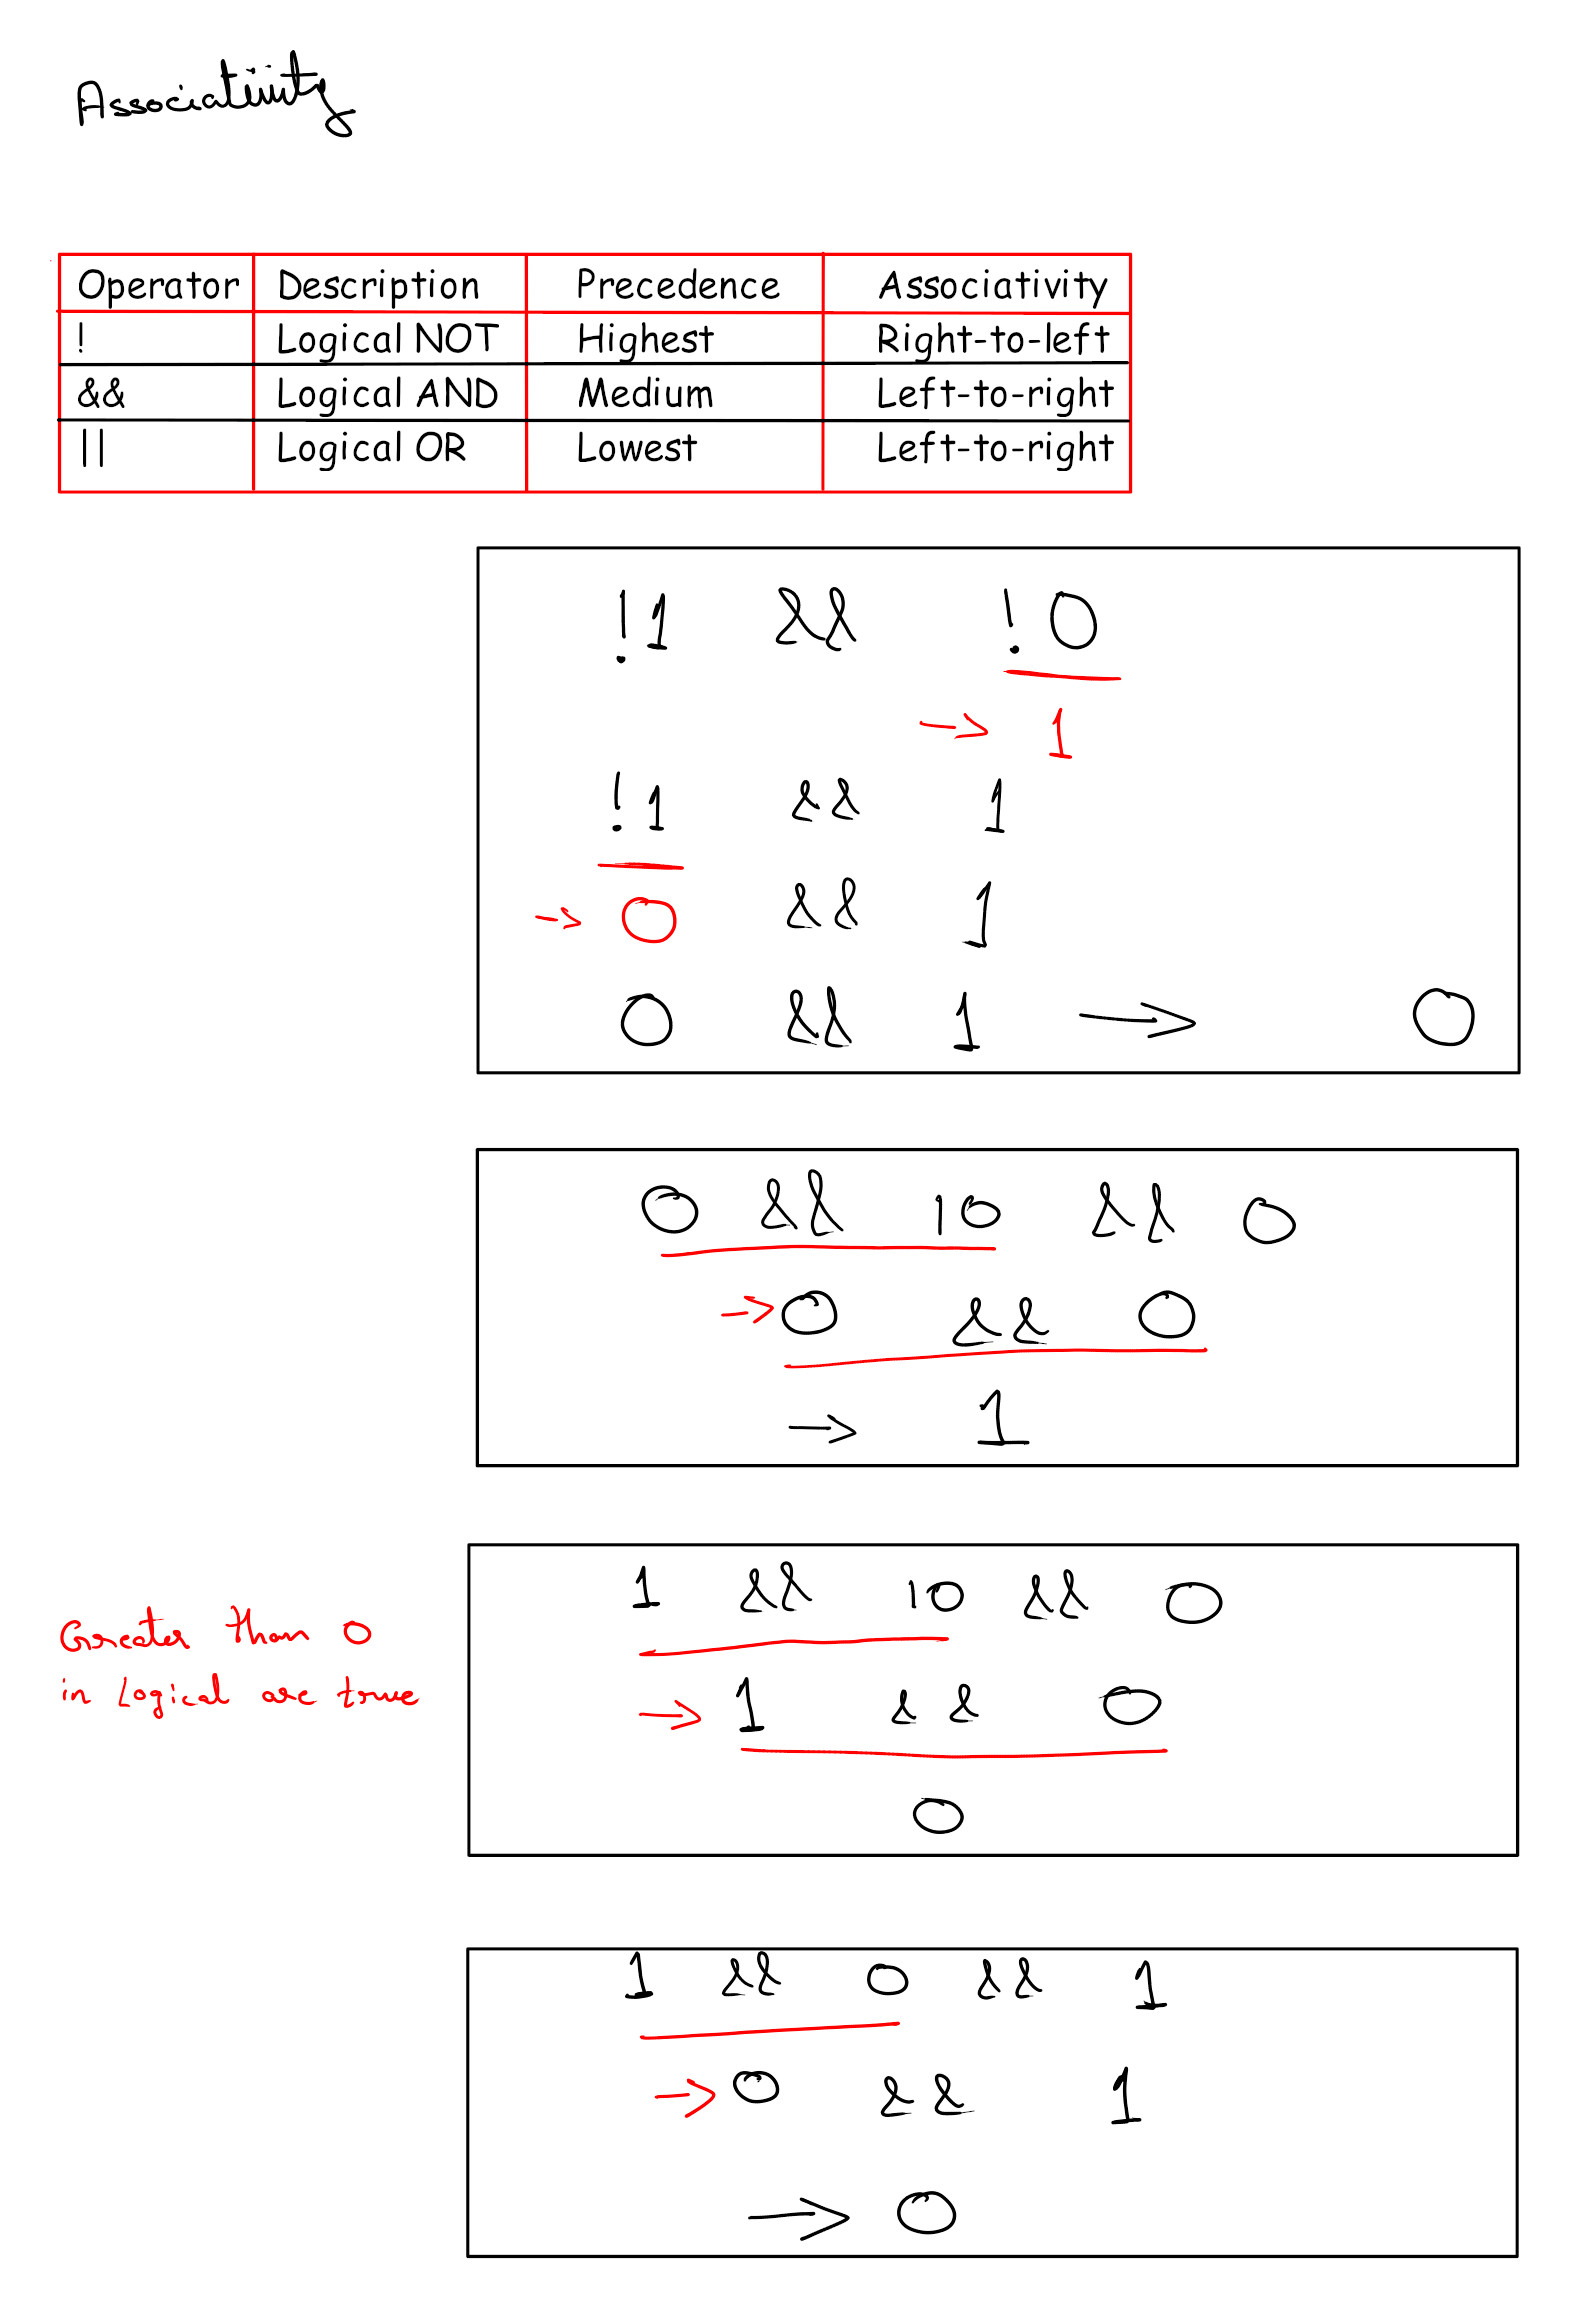 Associativity
Operator Description Precedence Associativity
! Logical NOT Highest Right-to-left
&& Logical AND Medium Left-to-right
|| Logical OR Lowest Left-to-right
!1 && !0
→ 1
!1 && 1
→ 0 && 1
0 && 1 → 0
0 && 10 && 0
→ 0 && 0
→ 1
1 && 10 && 0
Greater than 0
in Logical are true
→ 1 && 0
0
1 && 0 && 1
→ 0 && 1
→ 0